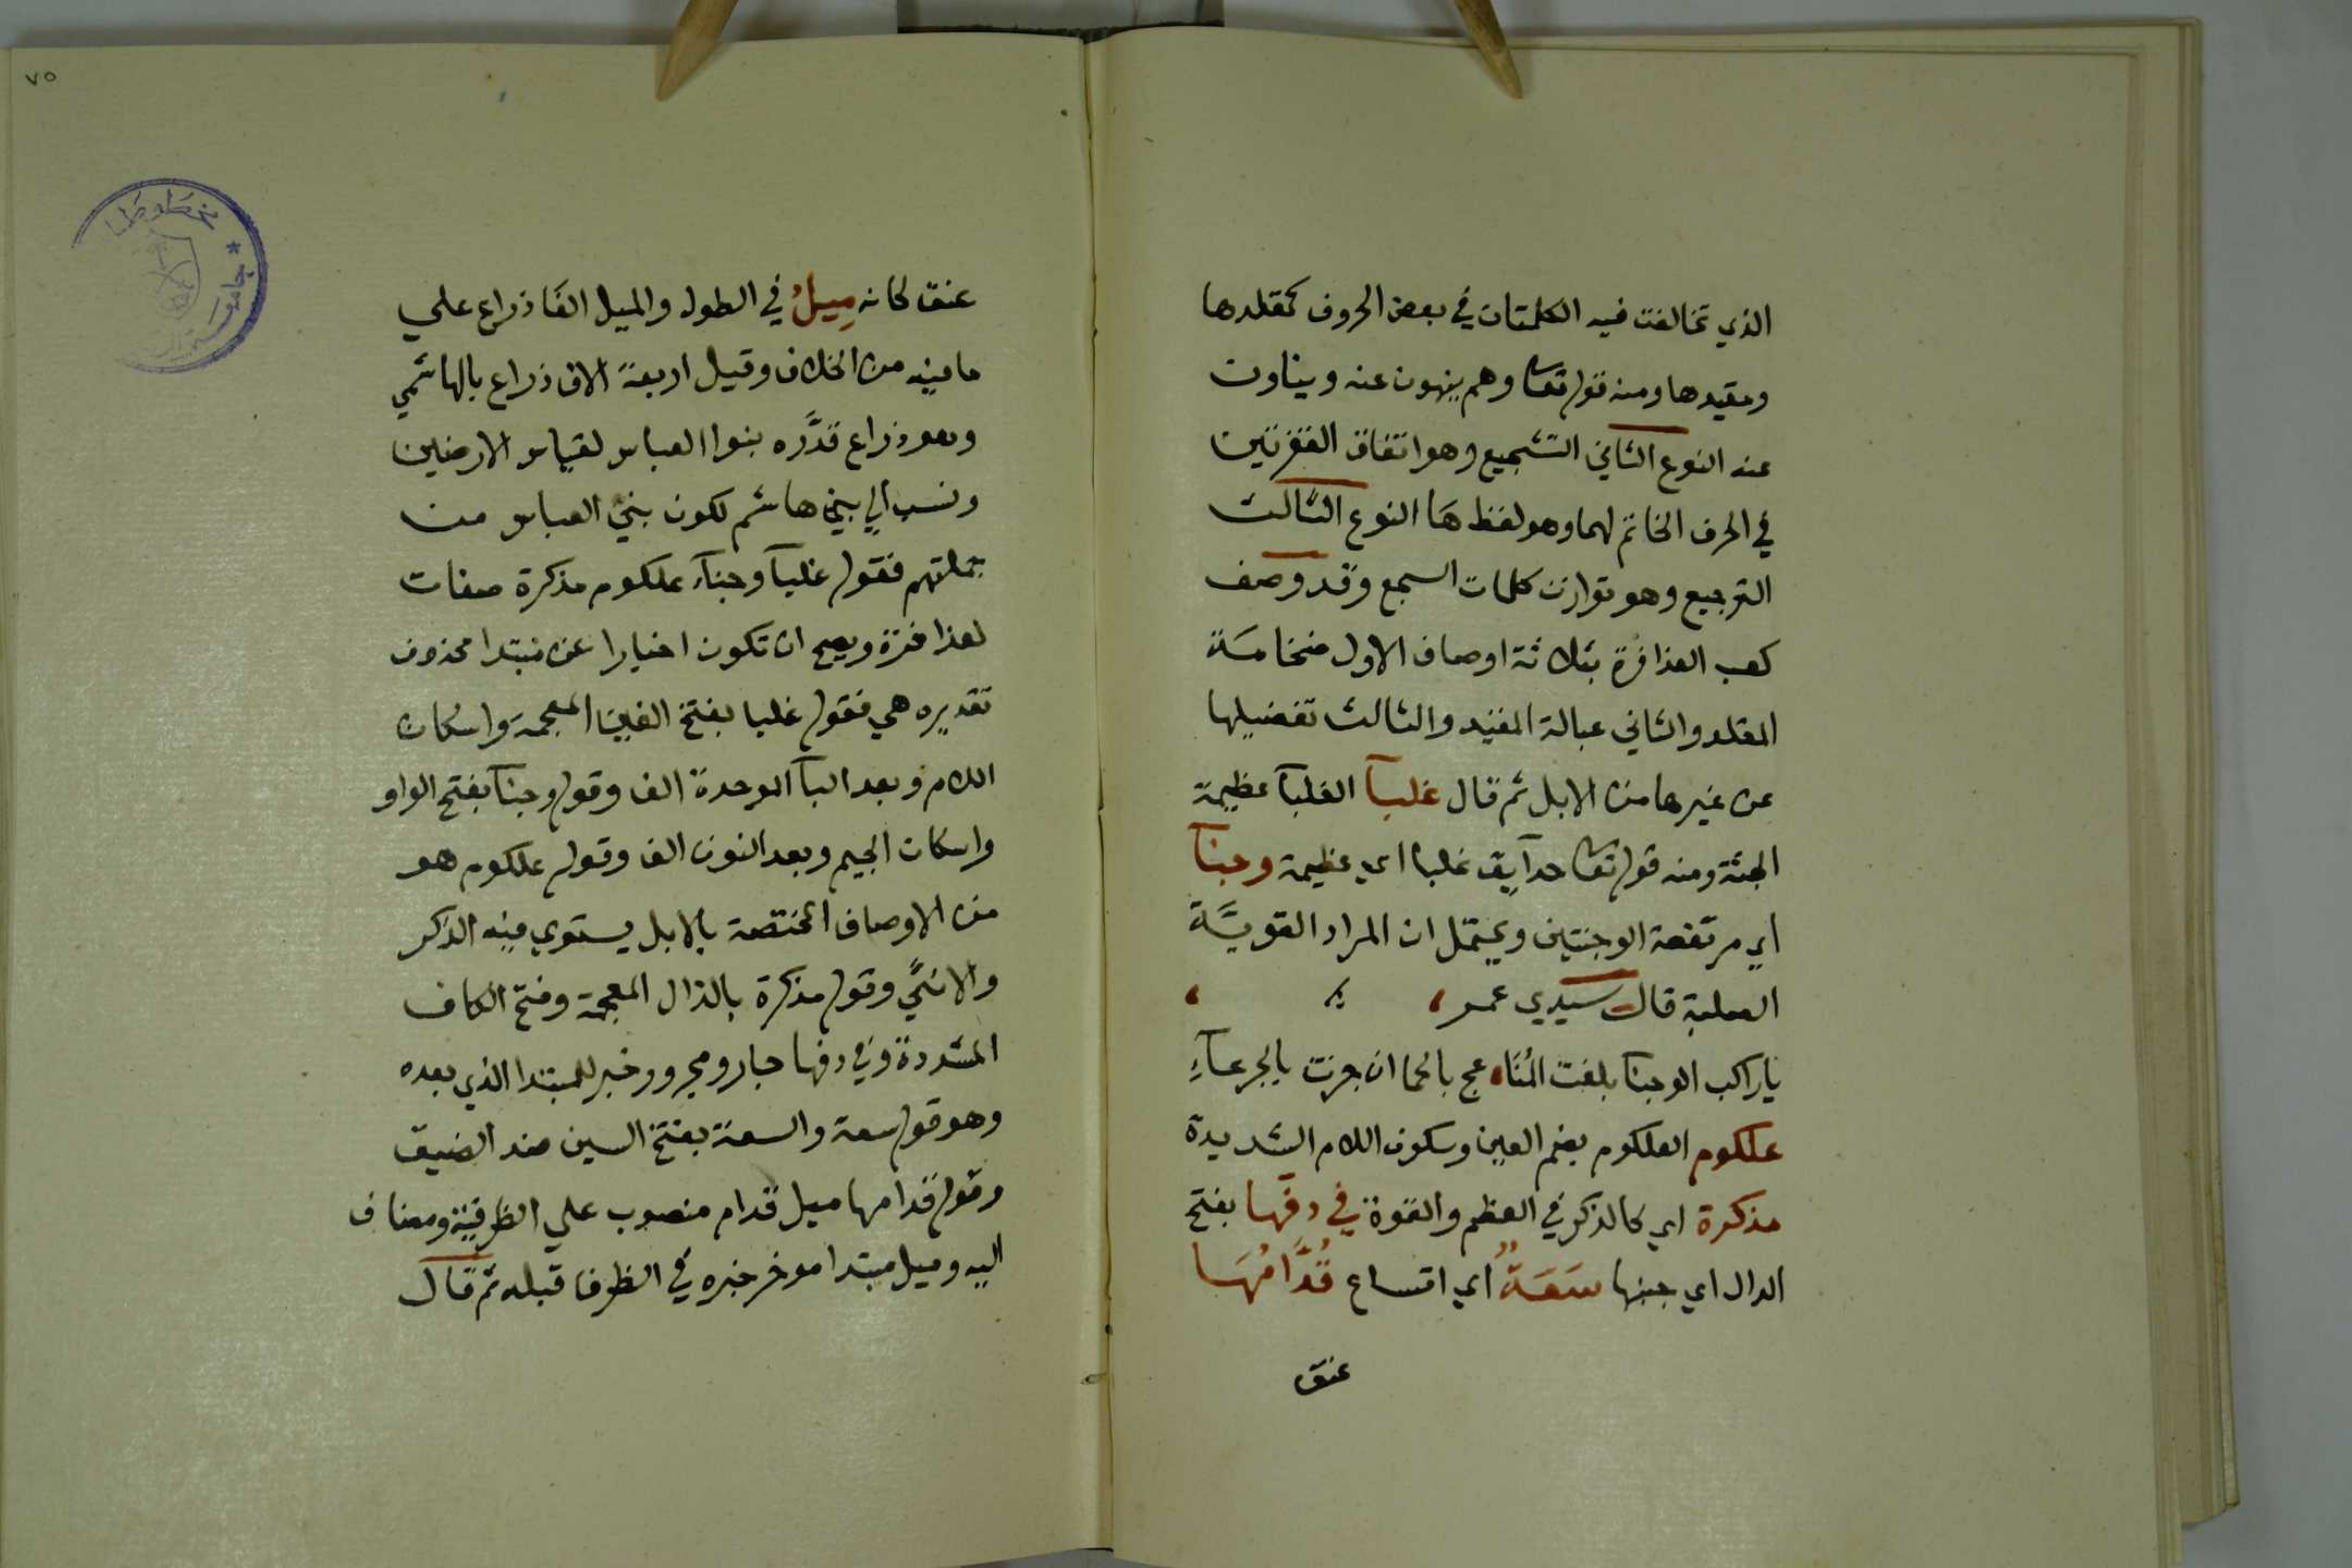 الذي تخالفت فيه الكلمتان في بعض الحروف كمقلدها
ومقيدها ومنه قوله تعا وهم ينهون عنه ويناون
عنه النوع الثاني التشجيع وهو اتفاق الفقرتين
في الحرف الخاتم لهما وهو لفظ هَا النوع الثالث
الترجيع وهو توازن كلمات السجع وقد وصف
كعب العذافرة بثلاثة اوصاف الاول ضخامة
المقلد والثاني عبالة المقيد والثالث تفضيلها
عن غيرها من الابل ثم قال غلبآ الغلبآ عظيمة
الجثة ومنه قوله تعا حدآيق غلبا اي عظيمة وجنآ
اي مرتفعة الوجنتين ويحتمل ان المراد القويَّة
الصلبة قال سيدي عمر
ياراكب الوجنا بلغت المُنَا عج بالحما ان جزت بالجرعآءِ
علكوم العلكوم بضم العين وسكون اللام الشديدة
مذكرة اي كالذكر في العظم والقوة في دفها بفتح
الدال اي جنبها سَعَةٌ اي اتساع قُدَّامُهَا
عنق
٧٥
عنق كانه مِيلُ في الطول والميل الفَا ذراع علي
ما فيه من الخلاف وقيل اربعة الاف ذراع بالهاشمي
وهو ذراع قدَّره بنوا العباس لقياس الارضين
ونسب الي بني هاشم لكون بني العباس من
جملتهم فقوله غلبآ وجنآء علكوم مذكرة صفات
لعذافرة ويصح ان تكون اخبارا عن مبتدا محذوف
تقديره هي فقوله غلبا بفتح الغين المعجمة واسكان
اللام وبعد البآ الموحدة الف وقوله وجنآ بفتح الواو
واسكان الجيم وبعد النون الف وقوله علكوم هو
من الاوصاف المختصة بالابل يستوي فيه الذكر
والانثي وقوله مذكرة بالذال المعجمة وفتح الكاف
المشددة وفي دفها جار ومجرور خبر للمبتدا الذي بعده
وهو قوله سعة والسعة بفتح السين ضد الضيق
وقوله قدامها ميل قدام منصوب علي الظرفية ومضاف
اليه وميل مبتدا موخر خبره في الظرف قبله ثم قال
مخطوطات
جامعة